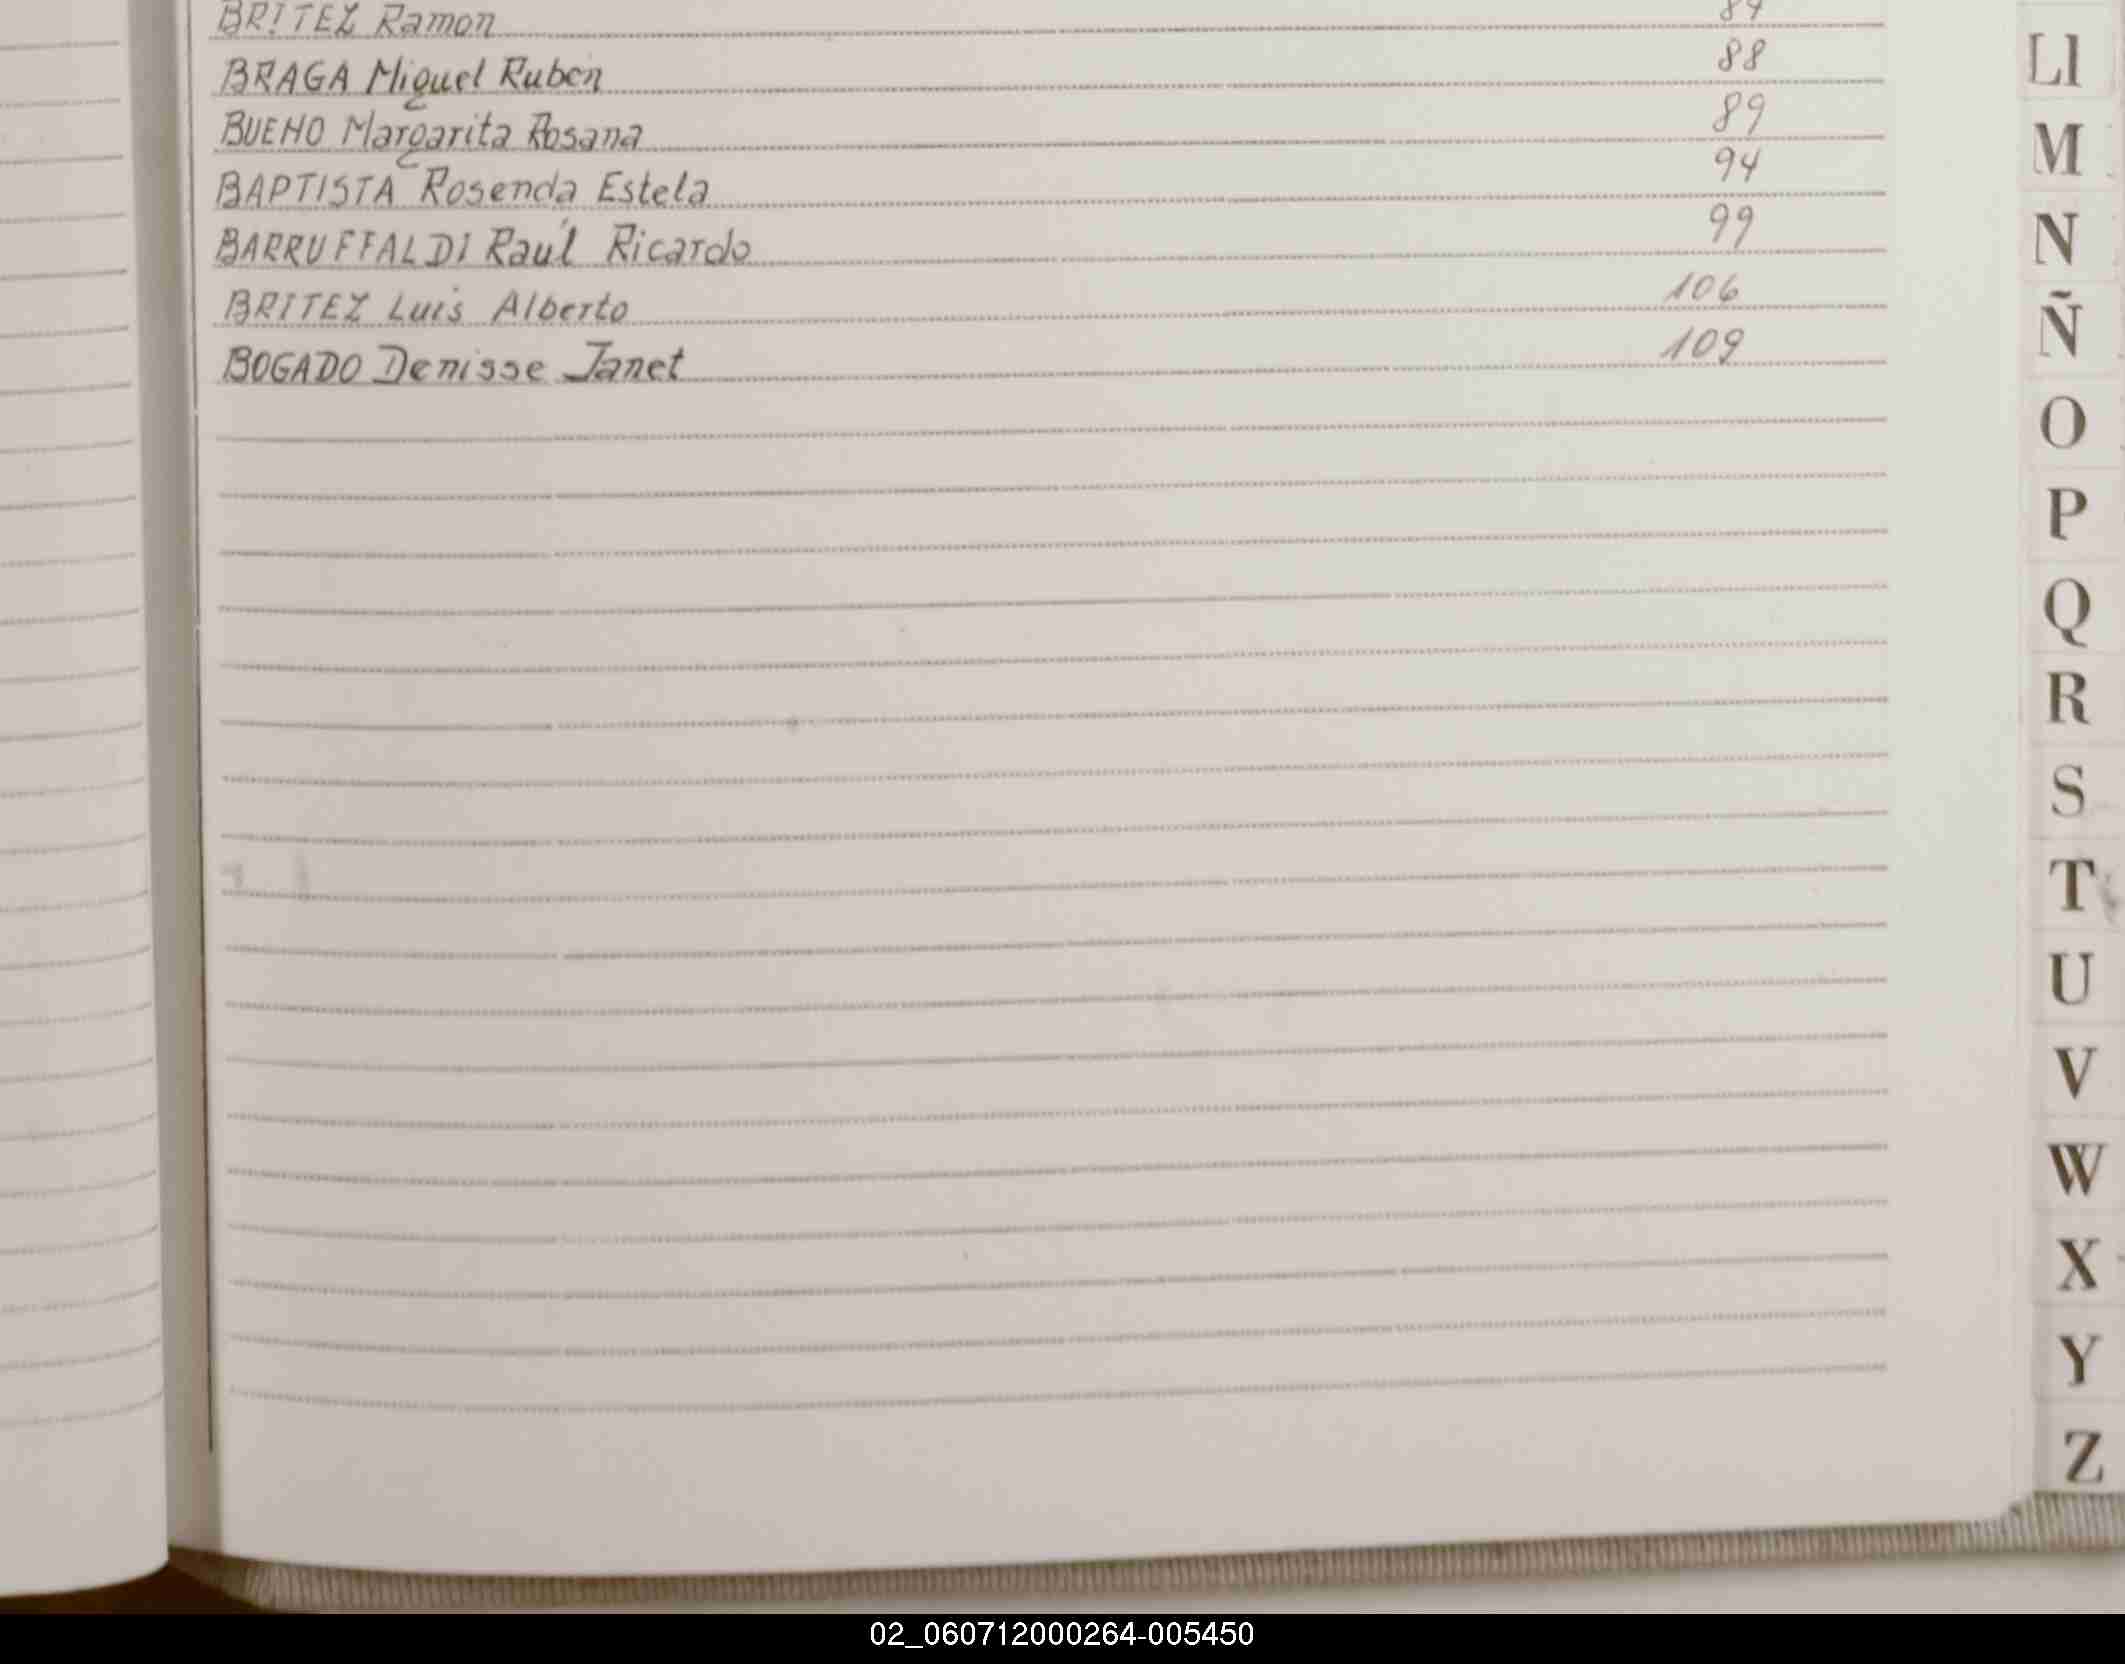 BRITEZ Ramon 84
BRAGA Miguel Ruben 88
BUENO Margarita Rosana 89
BAPTISTA Rosenda Estela 94
BARRUFFALDI Raúl Ricardo 99
BRITEZ Luis Alberto 106
BOGADO Denisse Janet 109
Ll
M
N
Ñ
O
P
Q
R
S
T
U
V
W
X
Y
Z
02_060712000264-005450